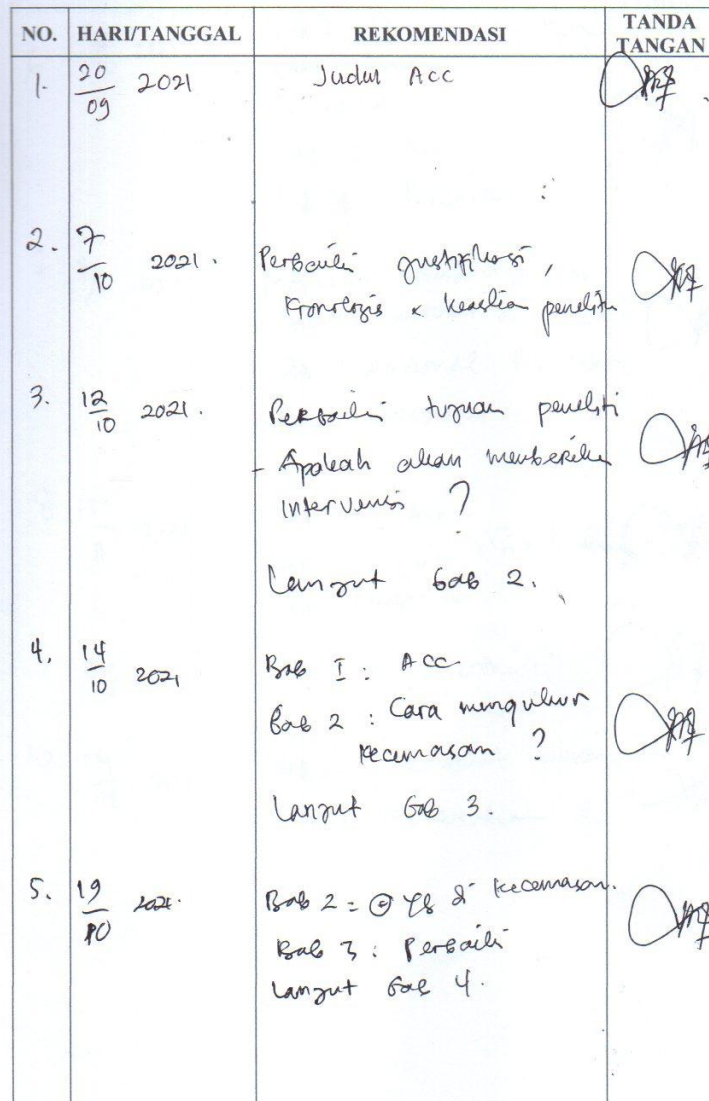 NO. HARI/TANGGAL REKOMENDASI TANDA TANGAN
1. 20/09 2021 Judul Acc
2. 7/10 2021. Perbaiki justifikasi,
Kronologis & keaslian penelitin
3. 12/10 2021. Perbaiki tujuan peneliti
- Apakah akan memberikan
intervensi ?
Lanjut bab 2.
4. 14/10 2021 Bab I : Acc
Bab 2 : Cara mengukur
kecemasan ?
Lanjut bab 3.
5. 19/10 2021. Bab 2 = kecemasan.
Bab 3 : Perbaiki
Lanjut bab 4.